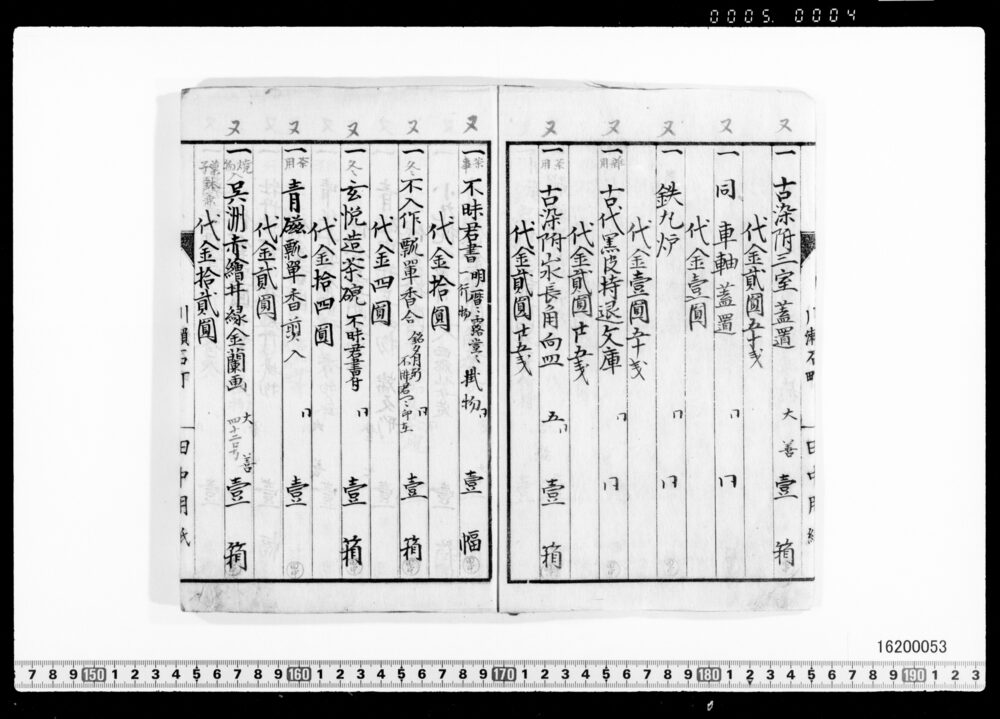 0005. 0004
又
一 古染附三室蓋置 大善 壹箱
代金貳圓五十戋
一 同 車軸蓋置 〃 〃
代金壹圓
又
一 鉄丸炉 〃 〃
代金壹圓五十戋
又
一 古代黒皮持退文庫 〃 〃
代金貳圓廿五戋
又
一 茶用 古染附山水長角向皿 五〃 壹箱
代金貳圓廿五戋
又
一 茶事 不昧君書 一行物 掛物 〃 壹幅
代金拾圓
又
一 冬 不入作瓢箪香合 〃 壹箱
代金四圓
又
一 冬 玄悦造茶碗 不昧君書付 〃 壹箱
代金拾四圓
又
一 茶用 青磁瓢箪香剪入 〃 壹
代金貳圓
又
一 呉洲赤繪丼緑金蘭画 大善 四十二号 壹箱
代金拾貳圓
川瀬石町 田中用紙
16200053
7 8 9 150 1 2 3 4 5 6 7 8 9 160 1 2 3 4 5 6 7 8 9 170 1 2 3 4 5 6 7 8 9 180 1 2 3 4 5 6 7 8 9 190 1 2 3